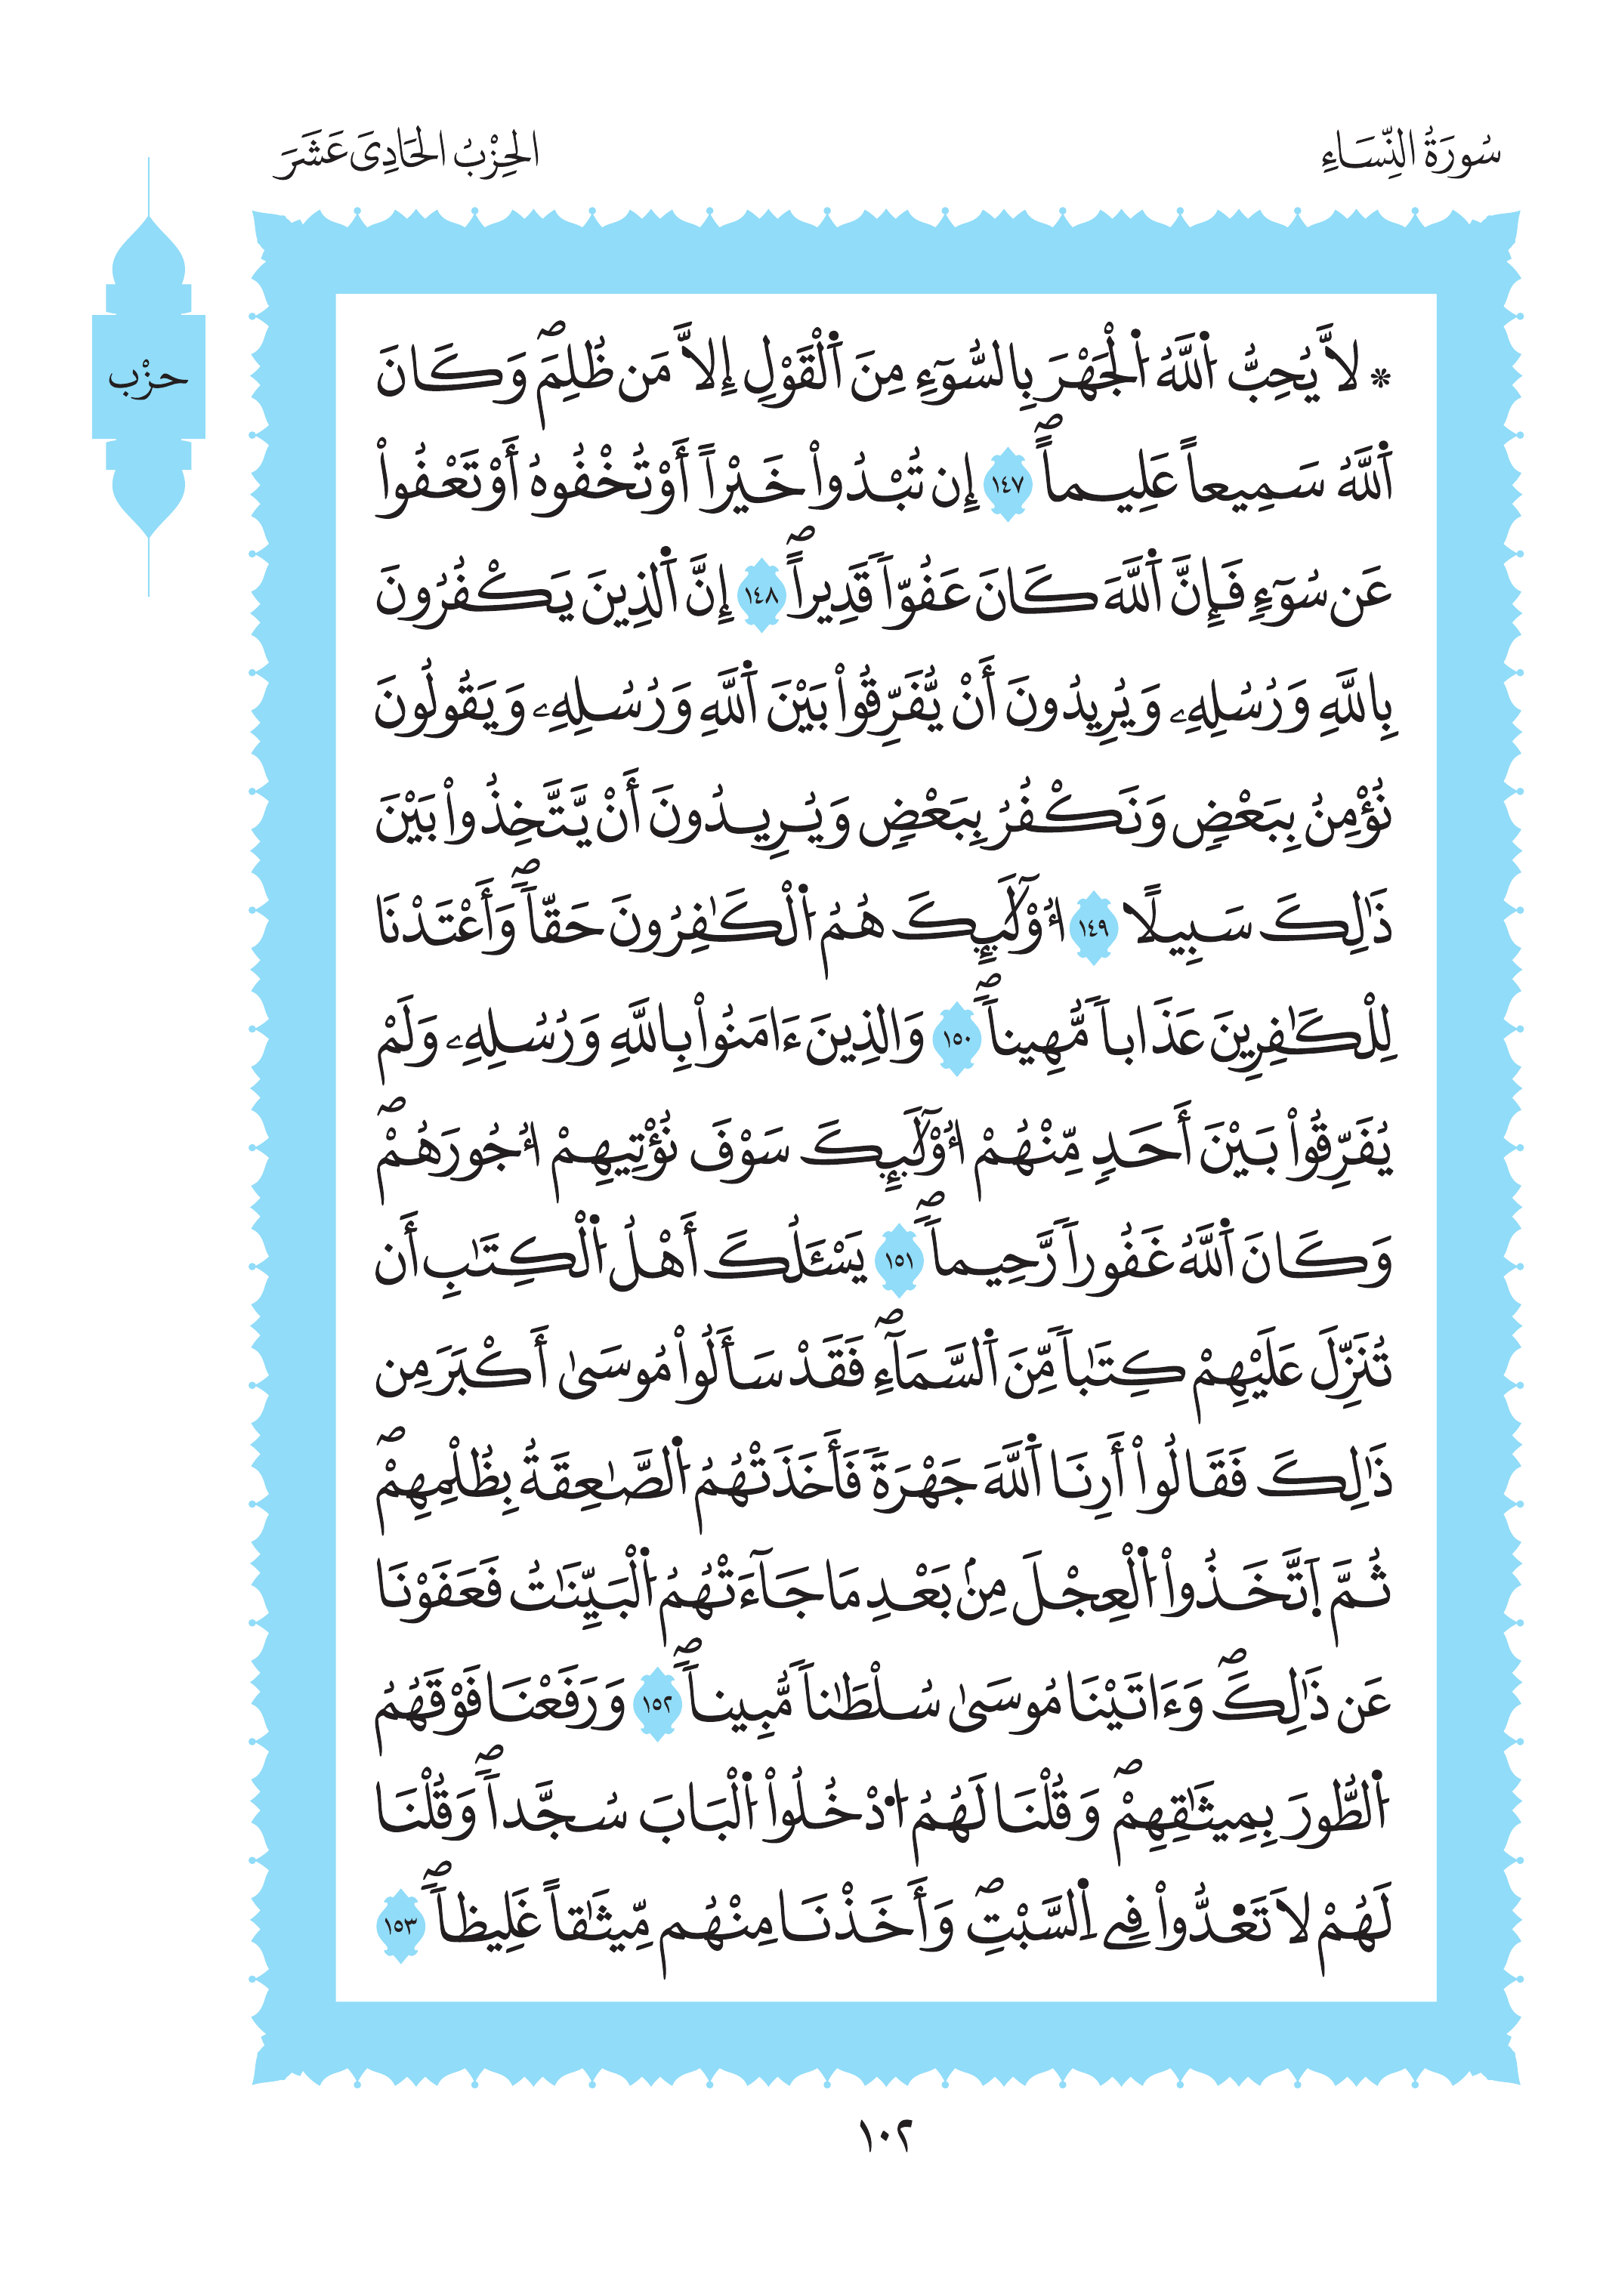 سُورَةُ النِّسَاءِ
الحِزْبُ الحَادِيَ عَشَرَ
حِزْب
* لَّا يُحِبُّ اُ۬للَّهُ اُ۬لْجَهْرَ بِالسُّوٓءِ مِنَ اَ۬لْقَوْلِ إِلَّا مَن ظُلِمَۖ وَكَانَ
اَ۬للَّهُ سَمِيعاً عَلِيماًۖ ١٤٧ إِن تُبْدُواْ خَيْراً أَوْ تُخْفُوهُ أَوْ تَعْفُواْ
عَن سُوٓءٖ فَإِنَّ اَ۬للَّهَ كَانَ عَفُوّاٗ قَدِيراًۖ ١٤٨ إِنَّ اَ۬لذِينَ يَكْفُرُونَ
بِاللَّهِ وَرُسُلِهِۦ وَيُرِيدُونَ أَنْ يُّفَرِّقُواْ بَيْنَ اَ۬للَّهِ وَرُسُلِهِۦ وَيَقُولُونَ
نُؤْمِنُ بِبَعْضٖ وَنَكْفُرُ بِبَعْضٖ وَيُرِيدُونَ أَنْ يَّتَّخِذُواْ بَيْنَ
ذَٰلِكَ سَبِيلًا ١٤٩ اُ۟وْلَٰٓئِكَ هُمُ اُ۬لْكَٰفِرُونَ حَقّاٗۖ وَأَعْتَدْنَا
لِلْكَٰفِرِينَ عَذَاباٗ مُّهِيناٗۖ ١٥٠ وَالذِينَ ءَامَنُواْ بِاللَّهِ وَرُسُلِهِۦ وَلَمْ
يُفَرِّقُواْ بَيْنَ أَحَدٖ مِّنْهُمْ اُ۟وْلَٰٓئِكَ سَوْفَ نُؤْتِيهِمْ اُ۟جُورَهُمْۖ
وَكَانَ اَ۬للَّهُ غَفُوراٗ رَّحِيماٗۖ ١٥١ يَسْـَٔلُكَ أَهْلُ اُ۬لْكِتَٰبِ أَن
تُنَزِّلَ عَلَيْهِمْ كِتَٰباٗ مِّنَ اَ۬لسَّمَآءِۖ فَقَدْ سَأَلُواْ مُوسَىٰ أَكْبَرَ مِن
ذَٰلِكَ فَقَالُواْ أَرِنَا اَ۬للَّهَ جَهْرَةٗ فَأَخَذَتْهُمُ اُ۬لصَّٰعِقَةُ بِظُلْمِهِمْۖ
ثُمَّ اَ۪تَّخَذُواْ اُ۬لْعِجْلَ مِنۢ بَعْدِ مَا جَآءَتْهُمُ اُ۬لْبَيِّنَٰتُ فَعَفَوْنَا
عَن ذَٰلِكَۖ وَءَاتَيْنَا مُوسَىٰ سُلْطَٰناٗ مُّبِيناٗۖ ١٥٢ وَرَفَعْنَا فَوْقَهُمُ
اُ۬لطُّورَ بِمِيثَٰقِهِمْۖ وَقُلْنَا لَهُمُ اُ۟دْخُلُواْ اُ۬لْبَابَ سُجَّداٗۖ وَقُلْنَا
لَهُمْ لَا تَعْدُّواْ فِے اِ۬لسَّبْتِۖ وَأَخَذْنَا مِنْهُم مِّيثَٰقاً غَلِيظاٗۖ ١٥٣
١٠٢